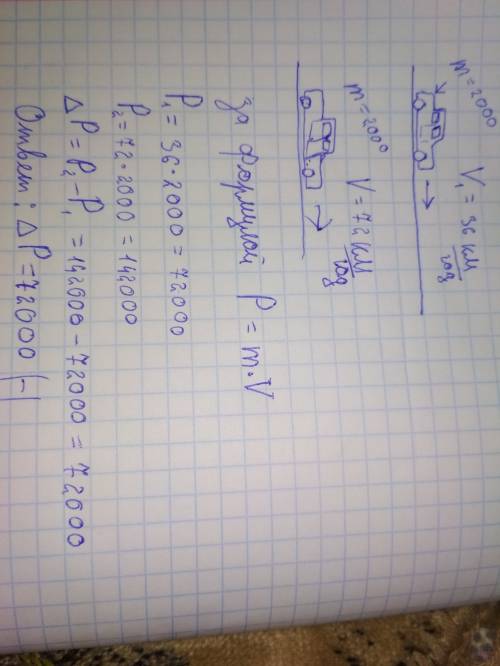 m = 2000 V₁ = 36 км/год
m = 2000 V = 72 км/год
за формулой P = m·V
P₁ = 36·2000 = 72000
P₂ = 72·2000 = 142000
ΔP = P₂ - P₁ = 142000 - 72000 = 72000
Ответ: ΔP = 72000